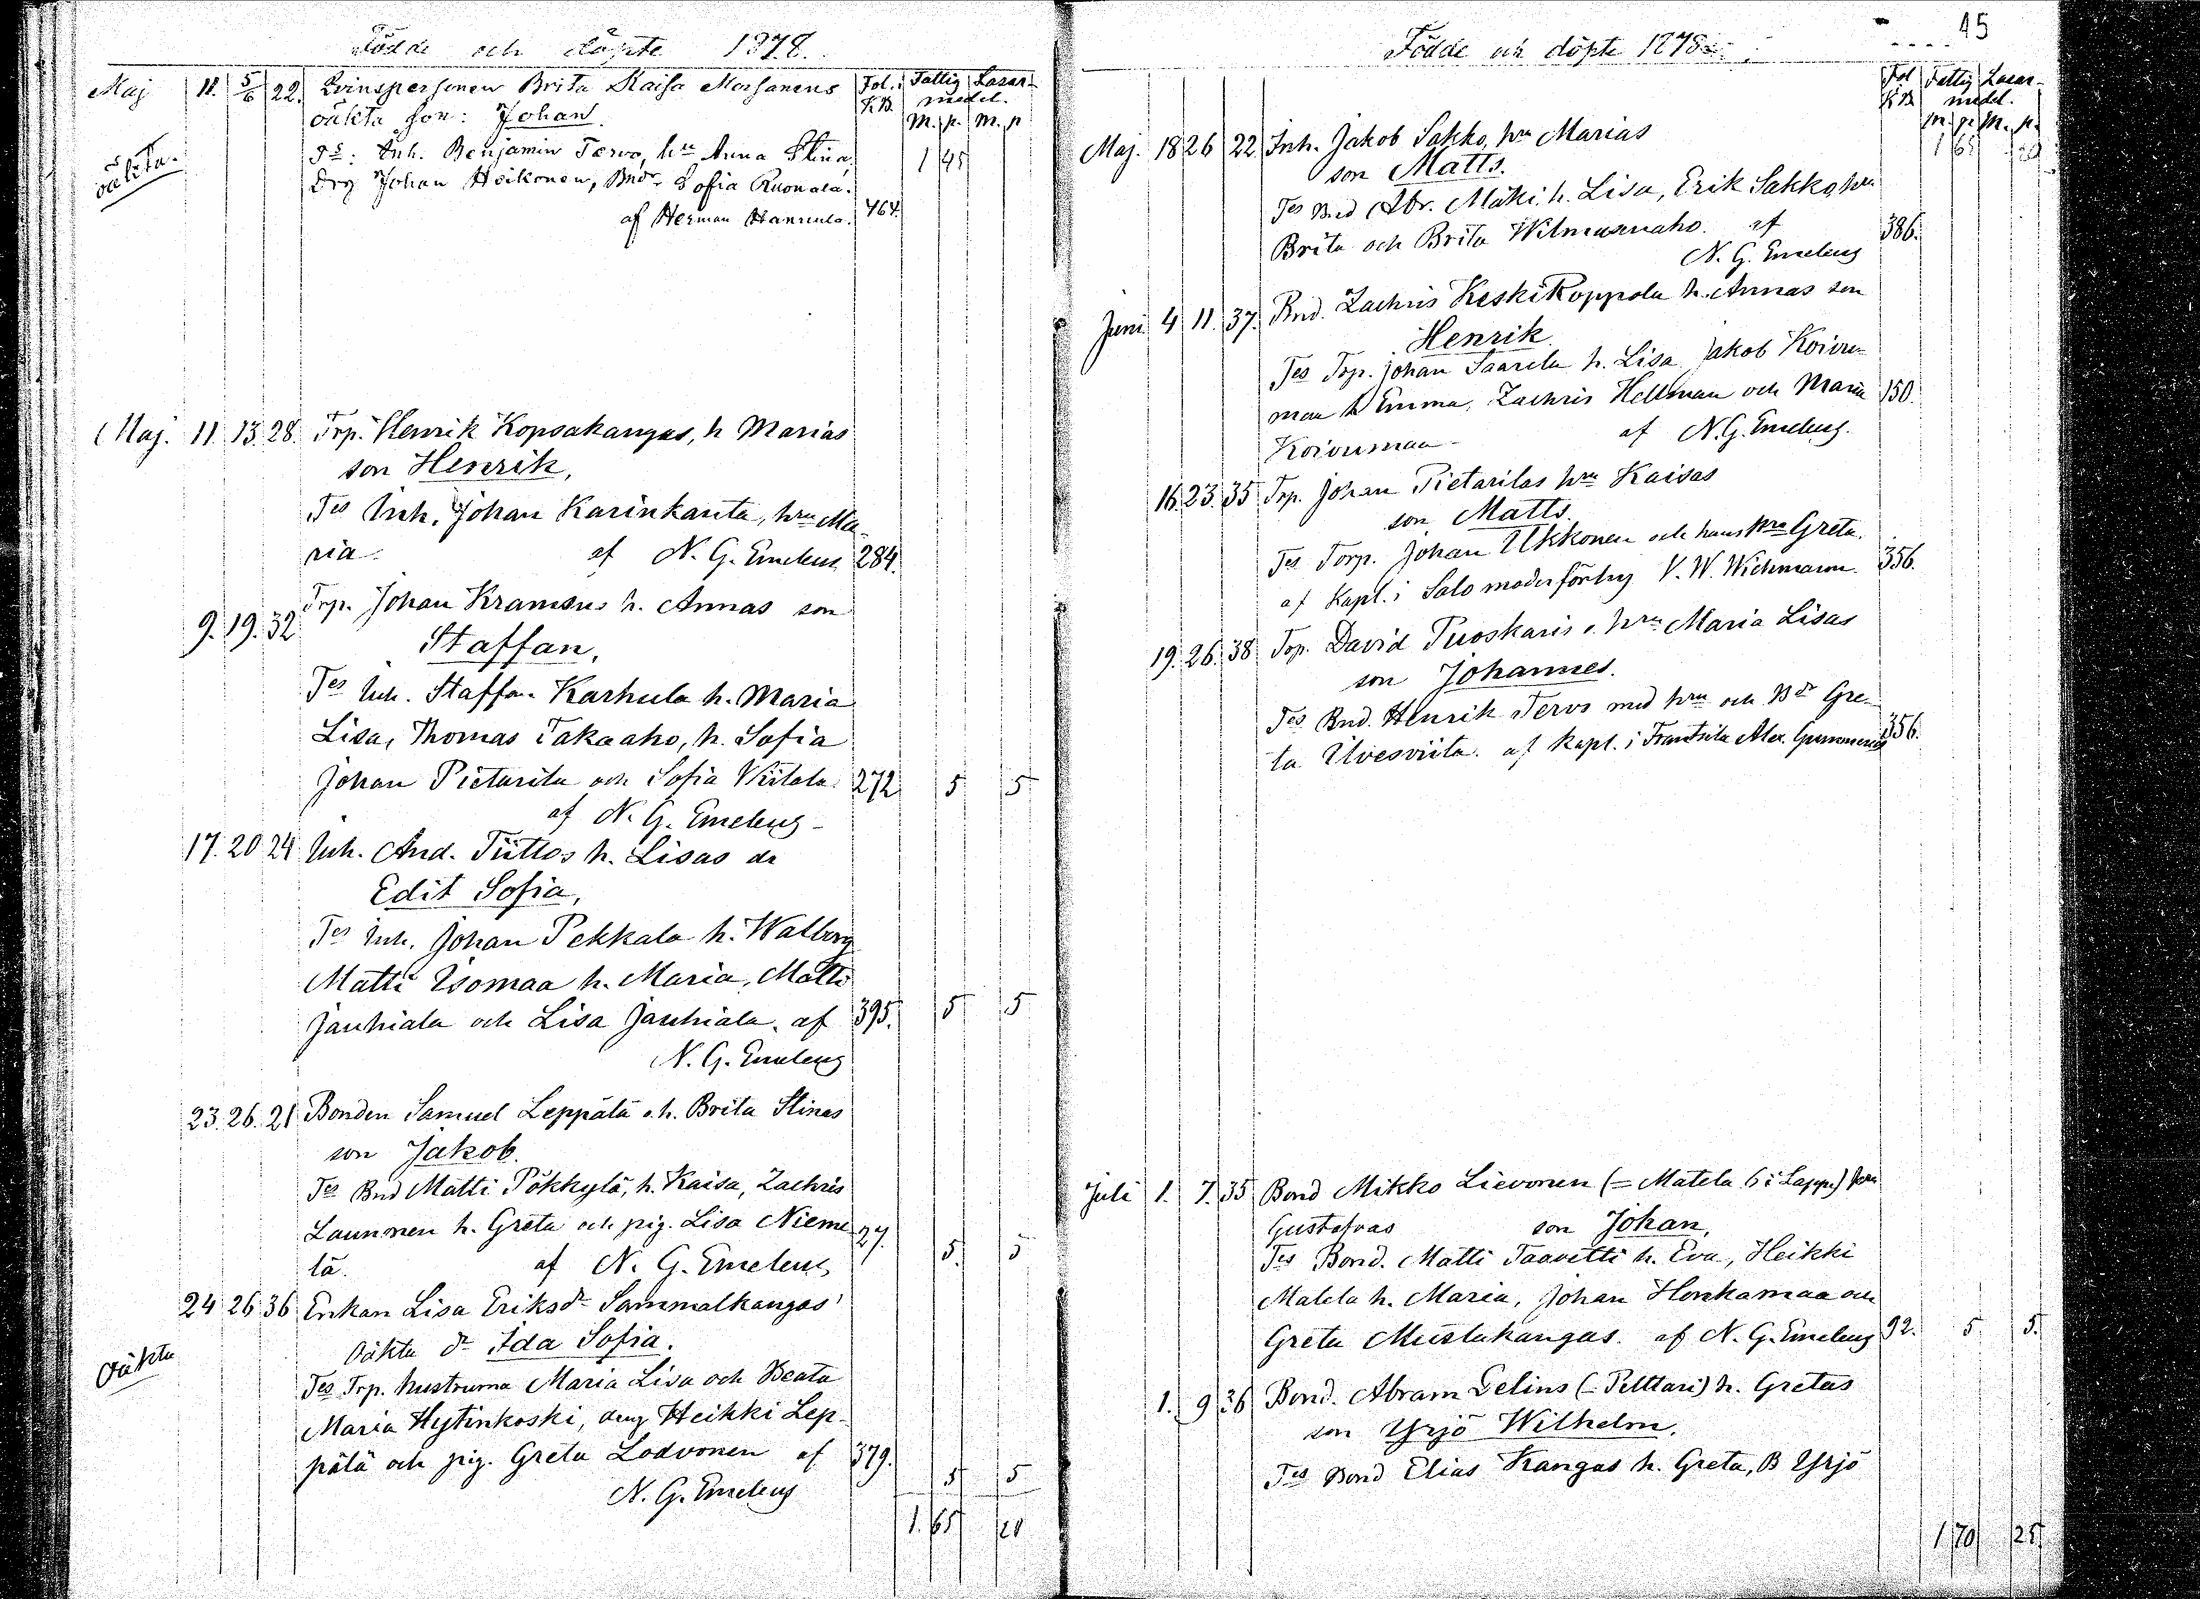 Födde och döpte 1878.
Maj 11. 5/6 22. Qvinspersonen Brita Kaisa
Fol. i K.B. Fattig Lasar-
medel.
M. p. M. p
oäkta son: Johan.
oäkta.
Ts: Inh. Benjamin Tervo, hru Anna Stina,
1 45
Drg Johan Heikonen, Bndr Sofia Ruonala.
af Herman Hannula. 464.
Maj. 11. 13. 28. Trp. Henrik Kopsakangas, h Marias
son Henrik,
Tes Inh. Johan Karinkanta, hru Ma-
ria. af N. G. Emeleus 284.
9. 19. 32 Trp. Johan Kramsus h. Annas son
Staffan.
Tes Inh. Staffan Karhula h. Maria
Lisa, Thomas Takaaho, h. Sofia
Johan Pietarila och Sofia Viitala 272 5 5
af N. G. Emeleus
17. 20 24 Inh. And. Tiittos h. Lisas dr
Edit Sofia,
Tes Inh. Johan Pekkala h. Walborg
Matti Isomaa h. Maria, Matti
Jauhiala och Lisa Jauhiala. af 395. 5 5
N. G. Emeleus
23. 26. 21 Bonden Samuel Leppälä o. h. Brita Stinas
son Jakob.
Tes Bnd Matti Pökkylä, h. Kaisa, Zachris
Launonen h. Greta och pig. Lisa Nieme- 27.
lä. af N. G. Emeleus 5. 5
24 26 36 Enkan Lisa Eriksdr Sammalkangas'
Oäkta dr Ida Sofia.
Oäkta
Tes Trp. hustrurna Maria Lisa och Beata
Maria Hytinkoski, dreng Heikki Lep-
pälä och pig. Greta Lodvonen af 379.
5 5
N. G. Emeleus
1. 65 20
45
Födde och döpte 1878.
Fol K.B. Fattig Lasar-
medel.
M. p. M. p.
1 65 20
Maj. 18 26 22 Inh. Jakob Sakko, hru Marias
son Matts.
Tes Bnd Abr. Mäki, h. Lisa, Erik Sakko, hru
Brita och Brita Wilmusenaho. af 386.
N. G. Emeleus
Juni 4 11. 37. Bnd. Zachris Keskikoppola h. Annas son
Henrik.
Tes Trp. Johan Saarela h. Lisa, Jakob Koivu-
maa h Emma, Zachris Hellman och Maria 150.
Koivumaa af N. G. Emeleus.
16. 23. 35 Trp. Johan Pietarilas hru Kaisas
son Matts.
Tes Torp. Johan Ukkonen och hans hru Greta.
af Kapl. i Salo moderförsg V. W. Wichmann. 356.
19. 26. 38. Trp. David Puoskaris o. hru Maria Lisas
son Johannes.
Tes Bnd. Henrik Tervo med hru och Bdr Gre-
ta Ilvesviita. af Kapl. i Frantsila Alex. Gummerus 356.
Juli 1. 7. 35 Bond Mikko Lievonen (= Matela 6 i Lapp.) hru
Gustafvas son Johan,
Tes Bond. Matti Taavetti h. Eva, Heikki
Matela h. Maria, Johan Honkamaa och
Greta Mustakangas. af N. G. Emeleus 92. 5 5.
1. 9 36 Bond. Abram Gelins (= Pelttari) h. Gretas
son Yrjö Wilhelm.
Tes Bond Elias Kangas h. Greta, B Yrjö
1 70 25